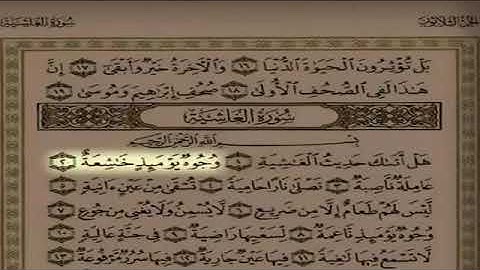 سُورَةُ الغَاشِيَةِ الجُزْءُ الثَّلَاثُونَ
بَلْ تُؤْثِرُونَ ٱلْحَيَوٰةَ ٱلدُّنْيَا ١٦ وَٱلْـَٔاخِرَةُ خَيْرٌ وَأَبْقَىٰٓ ١٧ إِنَّ
هَـٰذَا لَفِى ٱلصُّحُفِ ٱلْأُولَىٰ ١٨ صُحُفِ إِبْرَٰهِيمَ وَمُوسَىٰ ١٩
سُورَةُ الغَاشِيَةِ
بِسْمِ ٱللَّهِ ٱلرَّحْمَـٰنِ ٱلرَّحِيمِ
هَلْ أَتَىٰكَ حَدِيثُ ٱلْغَـٰشِيَةِ ١ وُجُوهٌ يَوْمَئِذٍ خَـٰشِعَةٌ ٢
عَامِلَةٌ نَّاصِبَةٌ ٣ تَصْلَىٰ نَارًا حَامِيَةً ٤ تُسْقَىٰ مِنْ عَيْنٍ ءَانِيَةٍ ٥
لَّيْسَ لَهُمْ طَعَامٌ إِلَّا مِن ضَرِيعٍ ٦ لَّا يُسْمِنُ وَلَا يُغْنِى مِن جُوعٍ ٧
وُجُوهٌ يَوْمَئِذٍ نَّاعِمَةٌ ٨ لِّسَعْيِهَا رَاضِيَةٌ ٩ فِى جَنَّةٍ عَالِيَةٍ ١٠
لَّا تَسْمَعُ فِيهَا لَـٰغِيَةً ١١ فِيهَا عَيْنٌ جَارِيَةٌ ١٢ فِيهَا سُرُرٌ مَّرْفُوعَةٌ ١٣